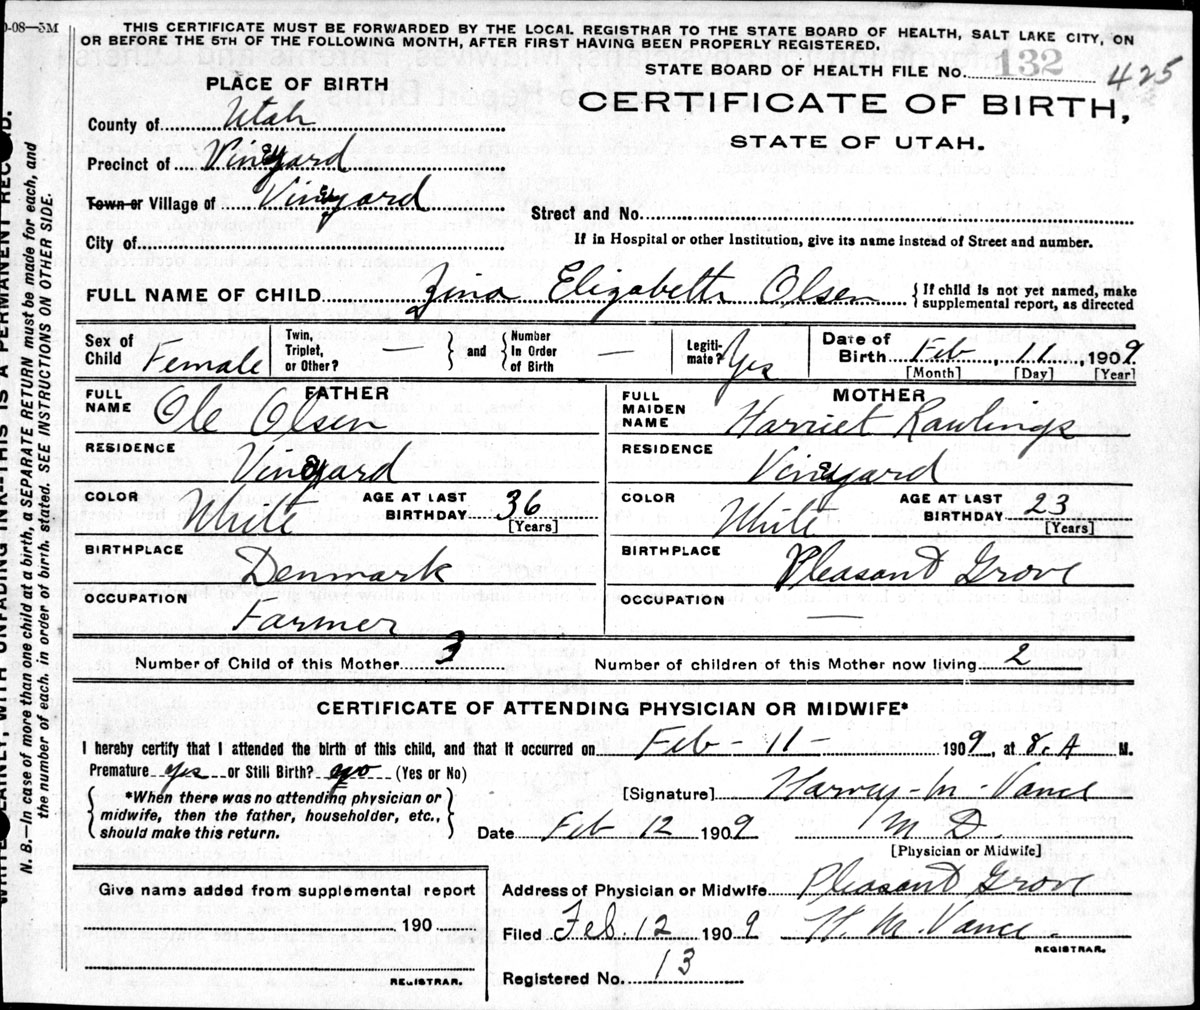 0-08—5M
THIS CERTIFICATE MUST BE FORWARDED BY THE LOCAL REGISTRAR TO THE STATE BOARD OF HEALTH, SALT LAKE CITY, ON
OR BEFORE THE 5TH OF THE FOLLOWING MONTH, AFTER FIRST HAVING BEEN PROPERLY REGISTERED.
STATE BOARD OF HEALTH FILE NO. 132 425
PLACE OF BIRTH
CERTIFICATE OF BIRTH,
STATE OF UTAH.
County of Utah
Precinct of Vineyard
Town or Village of Vineyard
Street and No.
City of
If in Hospital or other Institution, give its name instead of Street and number.
FULL NAME OF CHILD Zina Elizabeth Olsen { If child is not yet named, make
supplemental report, as directed
Sex of Child Female
Twin, Triplet, or Other? —
} and { Number In Order of Birth —
Legiti-mate? Yes
Date of Birth Feb, 11, 1909
[Month] [Day] [Year]
FATHER
FULL NAME Ole Olsen
RESIDENCE Vineyard
COLOR White AGE AT LAST BIRTHDAY 36
[Years]
BIRTHPLACE Denmark
OCCUPATION Farmer
MOTHER
FULL MAIDEN NAME Harriet Rawlings
RESIDENCE Vineyard
COLOR White AGE AT LAST BIRTHDAY 23
[Years]
BIRTHPLACE Pleasant Grove
OCCUPATION —
Number of Child of this Mother 3 Number of children of this Mother now living 2
CERTIFICATE OF ATTENDING PHYSICIAN OR MIDWIFE*
I hereby certify that I attended the birth of this child, and that it occurred on Feb - 11 - 1909, at 8. A M.
Premature yes or Still Birth? no (Yes or No)
{ *When there was no attending physician or
midwife, then the father, householder, etc.,
should make this return. }
[Signature] Harvey - M - Vance
Date Feb 12 1909 M D.
[Physician or Midwife]
Give name added from supplemental report
190
REGISTRAR.
Address of Physician or Midwife Pleasant Grove
Filed Feb. 12 1909 H. M. Vance.
REGISTRAR.
Registered No. 13
N. B.—In case of more than one child at a birth, a SEPARATE RETURN must be made for each, and
the number of each, in order of birth, stated. SEE INSTRUCTIONS ON OTHER SIDE.
WITH UNFADING INK--THIS IS A PERMANENT